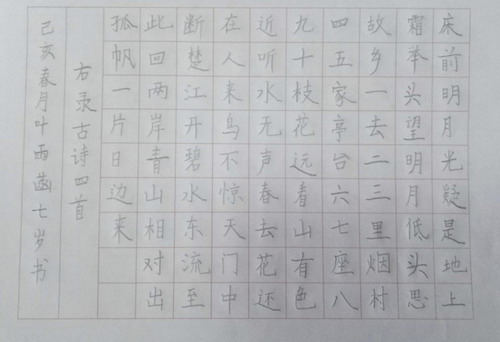 床前明月光疑是地上
霜举头望明月低头思
故乡一去二三里烟村
四五家亭台六七座八
九十枝花远看山有色
近听水无声春去花还
在人来鸟不惊天门中
断楚江开碧水东流至
此回两岸青山相对出
孤帆一片日边来
右录古诗四首
己亥春月叶菡七岁书